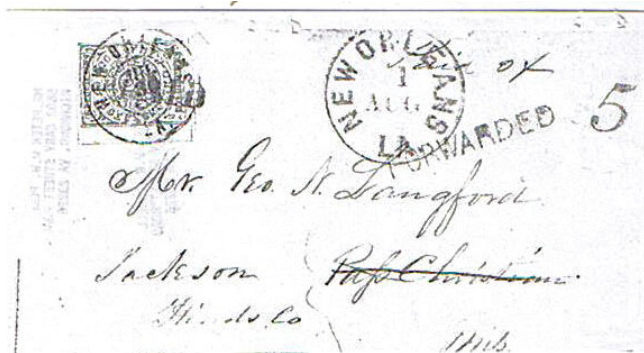 NEW ORLEANS
NEW ORLEANS
1
AUG
LA
FORWARDED
5
Mr. Geo. N. Langford
Jackson Pass Christian
Hinds Co
Miss